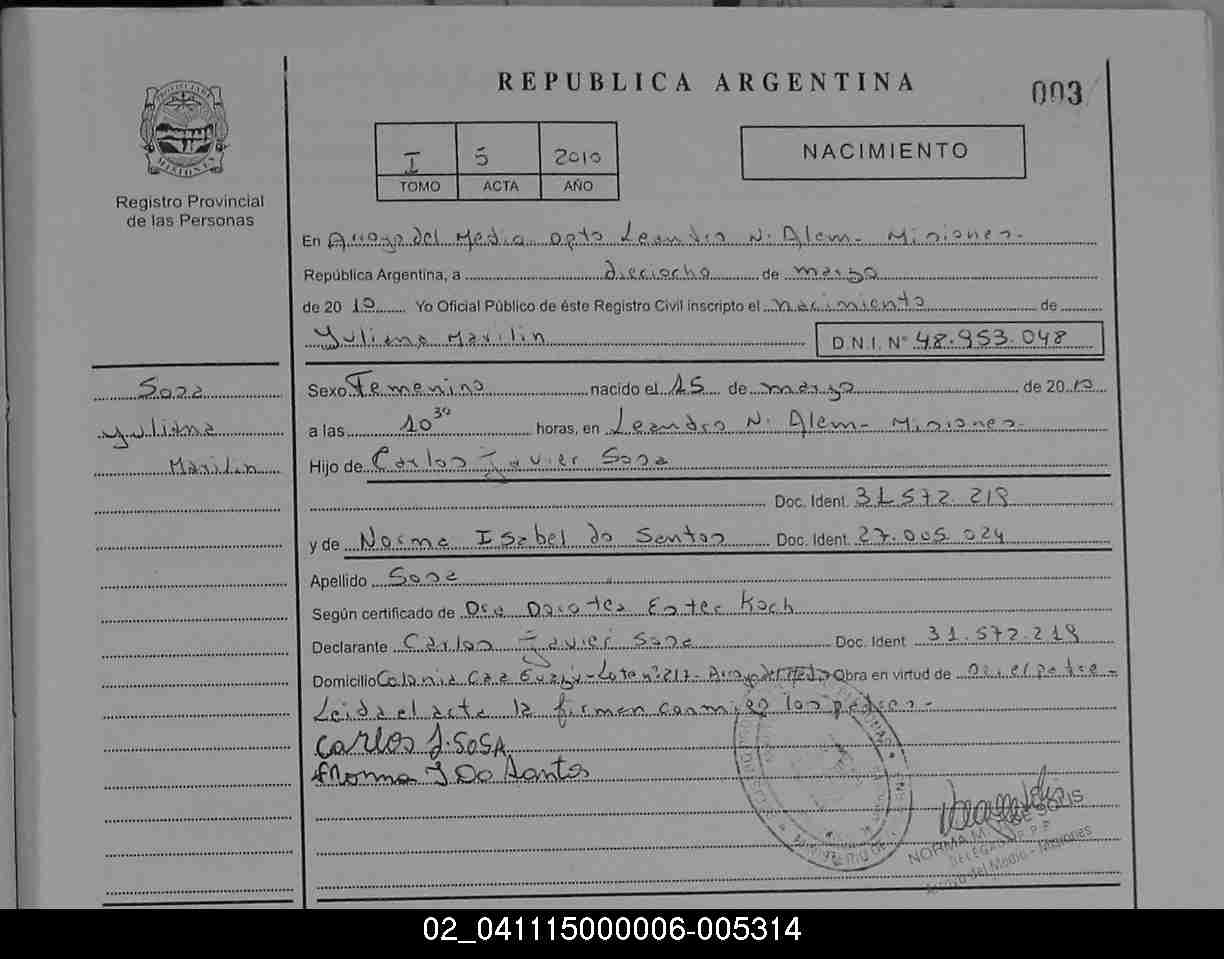 REPUBLICA ARGENTINA
003
PROVINCIA DE
MISIONES
Registro Provincial
de las Personas
I 5 2010
TOMO ACTA AÑO
NACIMIENTO
En Arroyo del Medio Dpto Leandro N. Alem - Misiones -
República Argentina, a dieciocho de marzo
de 2010 Yo Oficial Público de éste Registro Civil inscripto el nacimiento de
Yuliana Marilin D.N.I. N° 48.953.048
Sosa
Yuliana
Marilin
Sexo Femenino nacido el 15 de marzo de 2010
a las 10 30 horas, en Leandro N. Alem - Misiones -
Hijo de Carlos Javier Sosa
Doc. Ident. 31.572.219
y de Norma Isabel Do Santos Doc. Ident. 27.005.024
Apellido Sosa
Según certificado de Dra Dorotea Ester Koch
Declarante Carlos Javier Sosa Doc. Ident 31.572.219
Domicilio Colonia Caa Guazú - Lote n° 217 - Arroyo del Medio Obra en virtud de ser el padre -
Leida el acta la firman conmigo los padres -
Carlos J. SOSA
Norma I Do Santos
MINISTERIO DE
NORMA M. DE SERIS
DELEGADA R.P.P.
Arroyo del Medio - Misiones
02_041115000006-005314